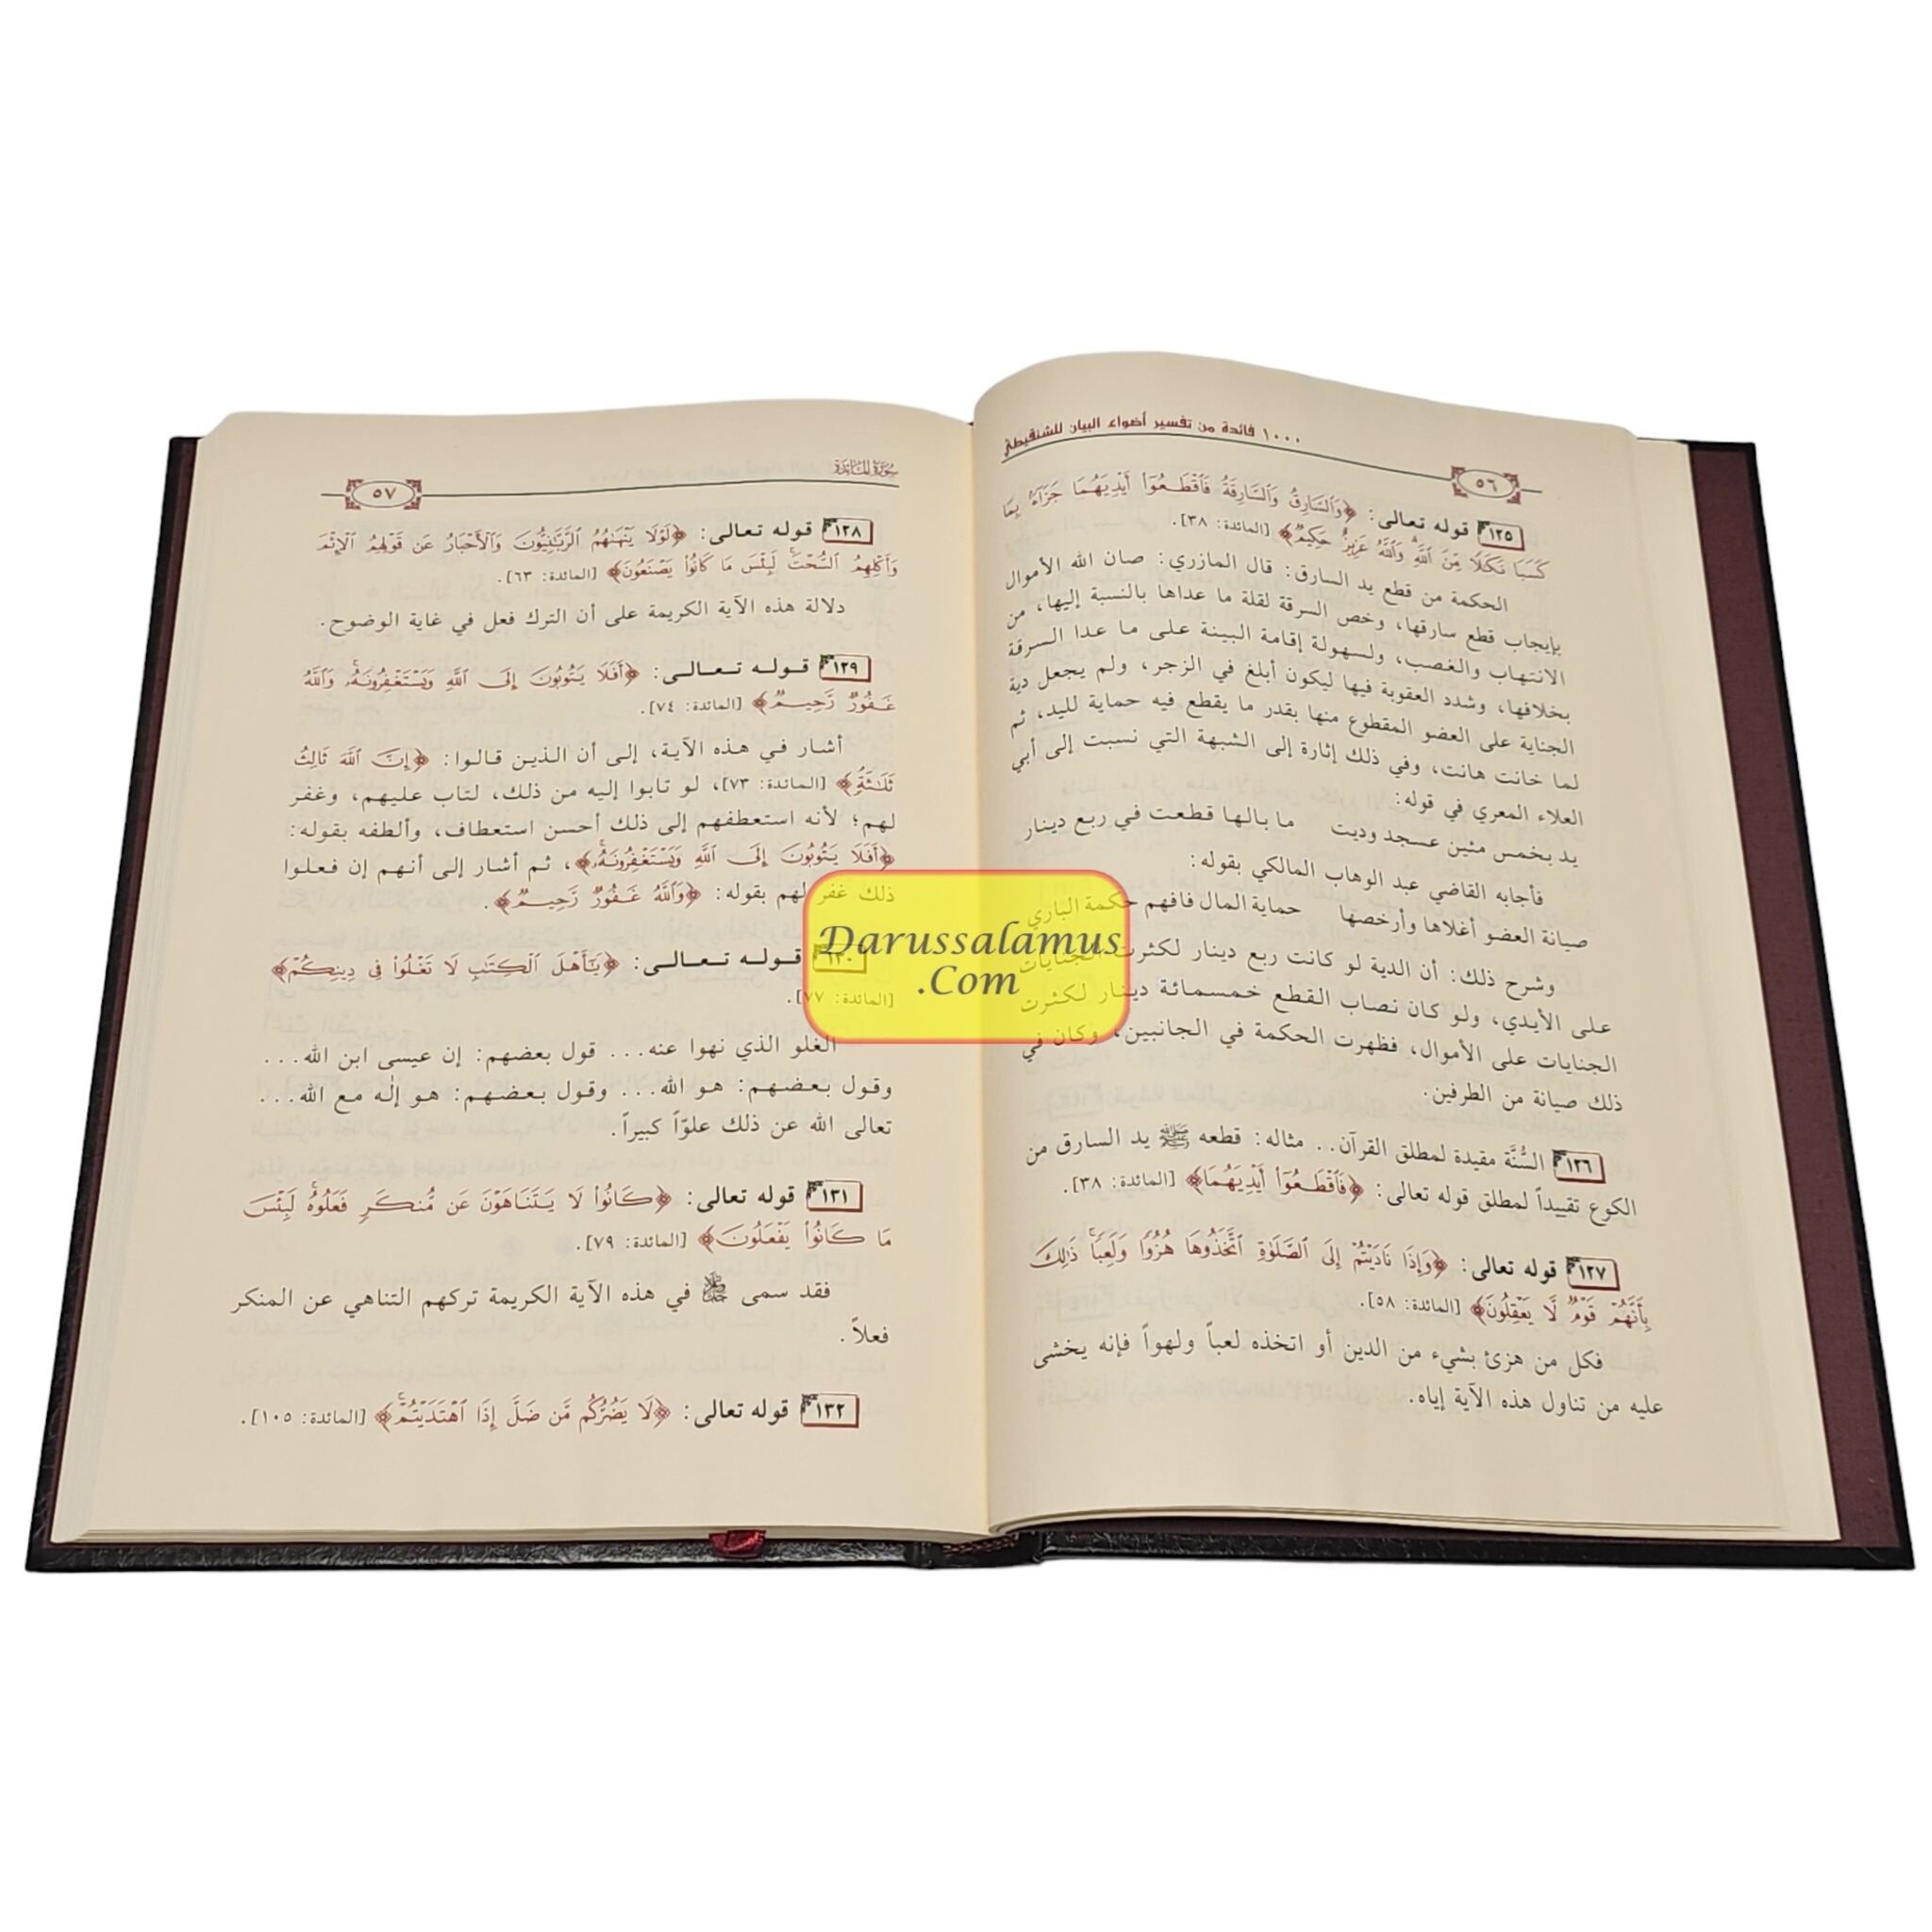 ١٠٠٠ فائدة من تفسير أضواء البيان للشنقيطي
٥٦
١٢٥ قوله تعالى: ﴿وَٱلسَّارِقُ وَٱلسَّارِقَةُ فَٱقْطَعُوٓا۟ أَيْدِيَهُمَا جَزَآءًۢ بِمَا
كَسَبَا نَكَـٰلًا مِّنَ ٱللَّهِ ۗ وَٱللَّهُ عَزِيزٌ حَكِيمٌ﴾ [المائدة: ٣٨].
الحكمة من قطع يد السارق: قال المازري: صان الله الأموال
بإيجاب قطع سارقها، وخص السرقة لقلة ما عداها بالنسبة إليها، من
الانتهاب والغصب، ولسهولة إقامة البينة على ما عدا السرقة
بخلافها، وشدد العقوبة فيها ليكون أبلغ في الزجر، ولم يجعل دية
الجناية على العضو المقطوع منها بقدر ما يقطع فيه حماية لليد، ثم
لما خانت هانت، وفي ذلك إثارة إلى الشبهة التي نسبت إلى أبي
العلاء المعري في قوله:
يد بخمس مئين عسجد وديت ما بالها قطعت في ربع دينار
فأجابه القاضي عبد الوهاب المالكي بقوله:
صيانة العضو أغلاها وأرخصها حماية المال فافهم حكمة الباري
وشرح ذلك: أن الدية لو كانت ربع دينار لكثرت الجنايات
على الأيدي، ولو كان نصاب القطع خمسمائة دينار لكثرت
الجنايات على الأموال، فظهرت الحكمة في الجانبين، وكان في
ذلك صيانة من الطرفين.
١٢٦ السُّنَّة مقيدة لمطلق القرآن.. مثاله: قطعه ﷺ يد السارق من
الكوع تقييداً لمطلق قوله تعالى: ﴿فَٱقْطَعُوٓا۟ أَيْدِيَهُمَا﴾ [المائدة: ٣٨].
١٢٧ قوله تعالى: ﴿وَإِذَا نَادَيْتُمْ إِلَى ٱلصَّلَوٰةِ ٱتَّخَذُوهَا هُزُوًا وَلَعِبًا ۚ ذَٰلِكَ
بِأَنَّهُمْ قَوْمٌ لَّا يَعْقِلُونَ﴾ [المائدة: ٥٨].
فكل من هزئ بشيء من الدين أو اتخذه لعباً ولهواً فإنه يخشى
عليه من تناول هذه الآية إياه.
سُورَةُ المَائِدَة
٥٧
١٢٨ قوله تعالى: ﴿لَوْلَا يَنْهَىٰهُمُ ٱلرَّبَّـٰنِيُّونَ وَٱلْأَحْبَارُ عَن قَوْلِهِمُ ٱلْإِثْمَ
وَأَكْلِهِمُ ٱلسُّحْتَ ۚ لَبِئْسَ مَا كَانُوا۟ يَصْنَعُونَ﴾ [المائدة: ٦٣].
دلالة هذه الآية الكريمة على أن الترك فعل في غاية الوضوح.
١٢٩ قوله تعالى: ﴿أَفَلَا يَتُوبُونَ إِلَى ٱللَّهِ وَيَسْتَغْفِرُونَهُۥ ۚ وَٱللَّهُ
غَفُورٌ رَّحِيمٌ﴾ [المائدة: ٧٤].
أشار في هذه الآية، إلى أن الذين قالوا: ﴿إِنَّ ٱللَّهَ ثَالِثُ
ثَلَـٰثَةٍ﴾ [المائدة: ٧٣]، لو تابوا إليه من ذلك، لتاب عليهم، وغفر
لهم؛ لأنه استعطفهم إلى ذلك أحسن استعطاف، وألطفه بقوله:
﴿أَفَلَا يَتُوبُونَ إِلَى ٱللَّهِ وَيَسْتَغْفِرُونَهُۥ ۚ﴾، ثم أشار إلى أنهم إن فعلوا
ذلك غفر لهم بقوله: ﴿وَٱللَّهُ غَفُورٌ رَّحِيمٌ﴾.
١٣٠ قوله تعالى: ﴿يَـٰٓأَهْلَ ٱلْكِتَـٰبِ لَا تَغْلُوا۟ فِى دِينِكُمْ﴾
[المائدة: ٧٧].
الغلو الذي نهوا عنه... قول بعضهم: إن عيسى ابن الله...
وقول بعضهم: هو الله... وقول بعضهم: هو إلٰه مع الله...
تعالى الله عن ذلك علوّاً كبيراً.
١٣١ قوله تعالى: ﴿كَانُوا۟ لَا يَتَنَاهَوْنَ عَن مُّنكَرٍ فَعَلُوهُ ۚ لَبِئْسَ
مَا كَانُوا۟ يَفْعَلُونَ﴾ [المائدة: ٧٩].
فقد سمى ﷻ في هذه الآية الكريمة تركهم التناهي عن المنكر
فعلاً.
١٣٢ قوله تعالى: ﴿لَا يَضُرُّكُم مَّن ضَلَّ إِذَا ٱهْتَدَيْتُمْ ۚ﴾ [المائدة: ١٠٥].
Darussalamus
.Com